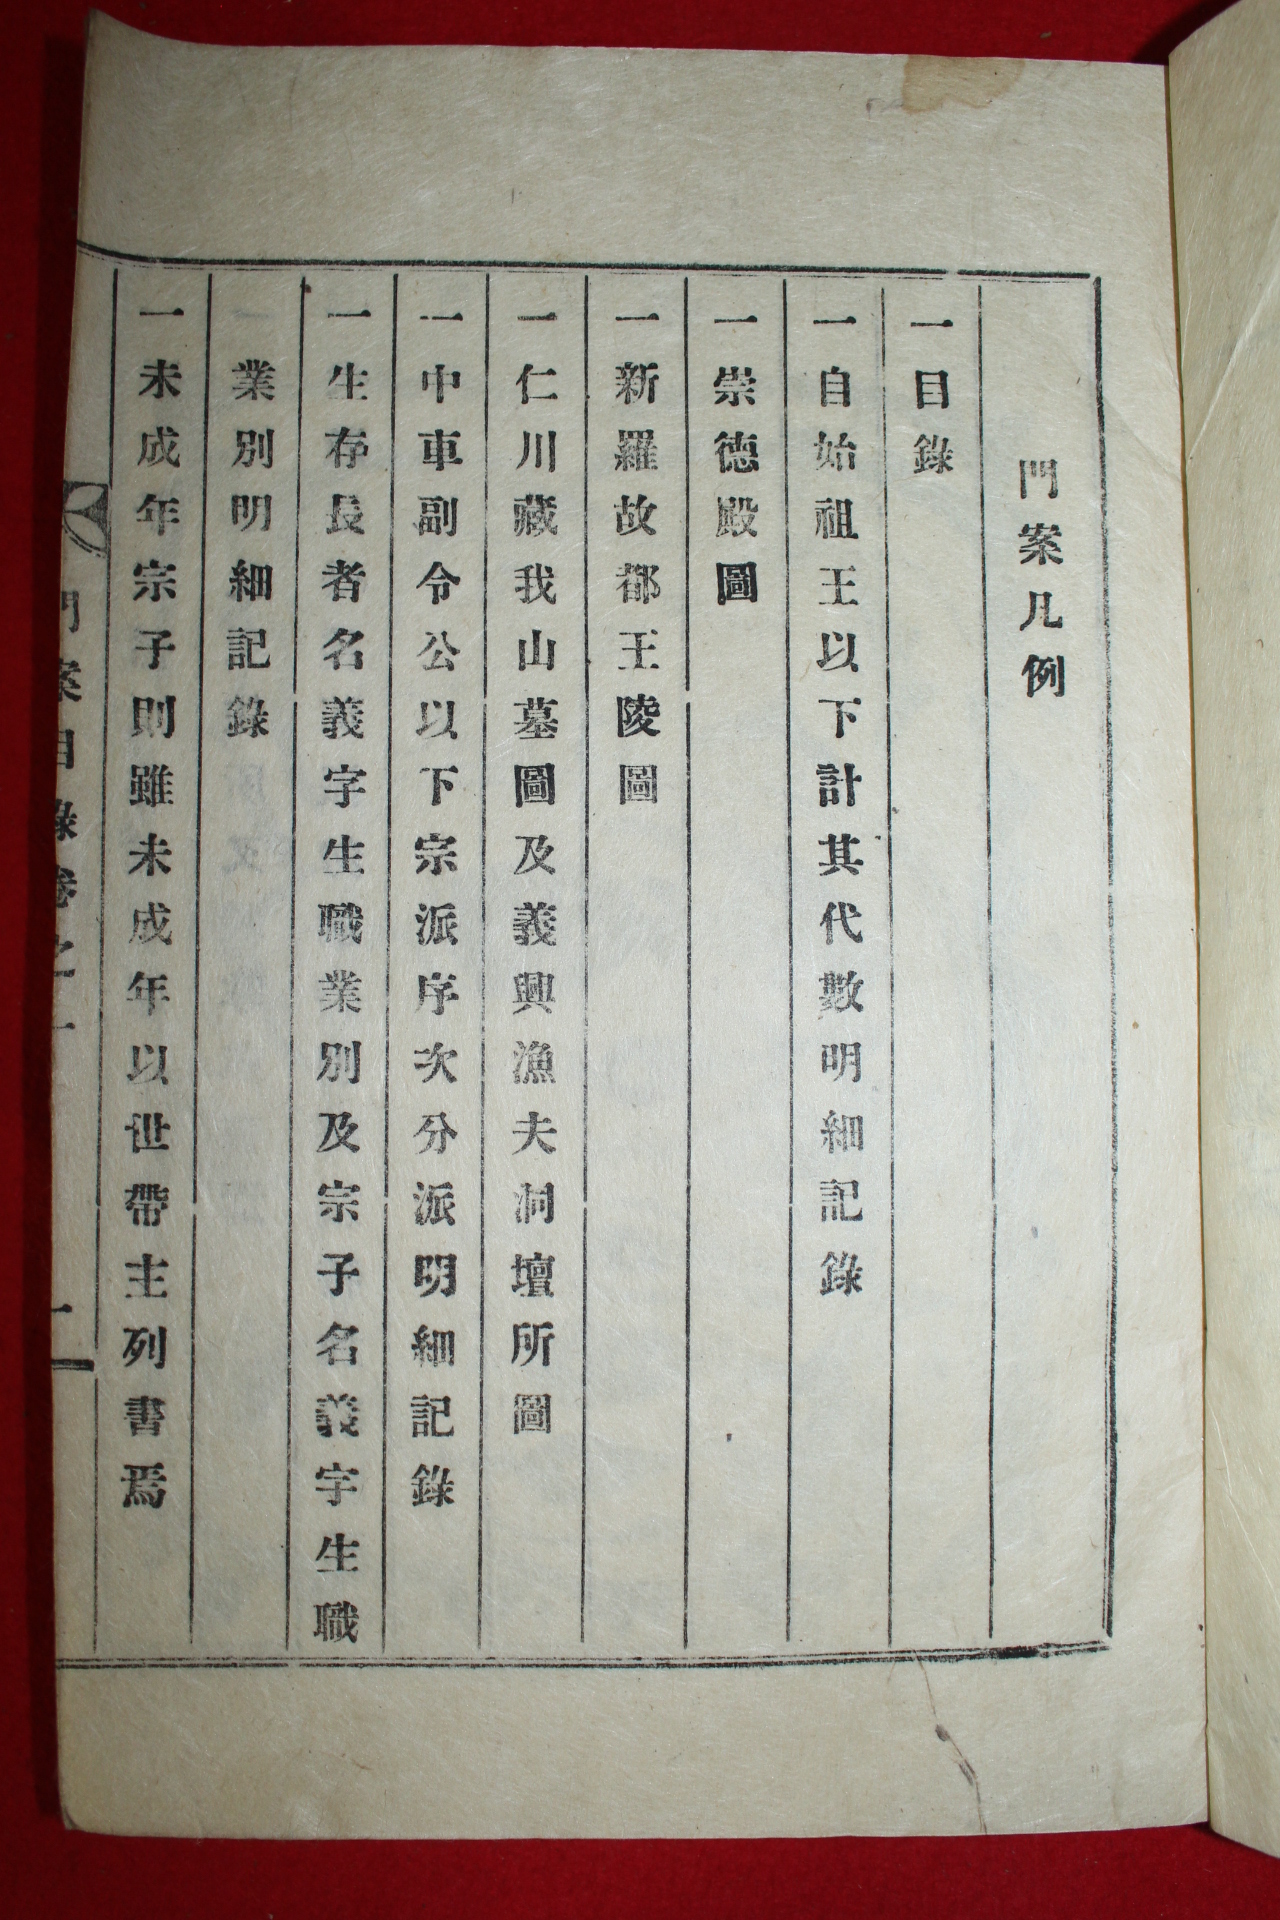 門案凡例
一目錄
一自始祖王以下計其代數明細記錄
一崇德殿圖
一新羅故都王陵圖
一仁川藏我山墓圖及義興漁夫洞壇所圖
一中車副令公以下宗派序次分派明細記錄
一生存長者名義字生職業別及宗子名義字生職
業別明細記錄
一未成年宗子則雖未成年以世帶主列書焉
門案目錄卷之一
一